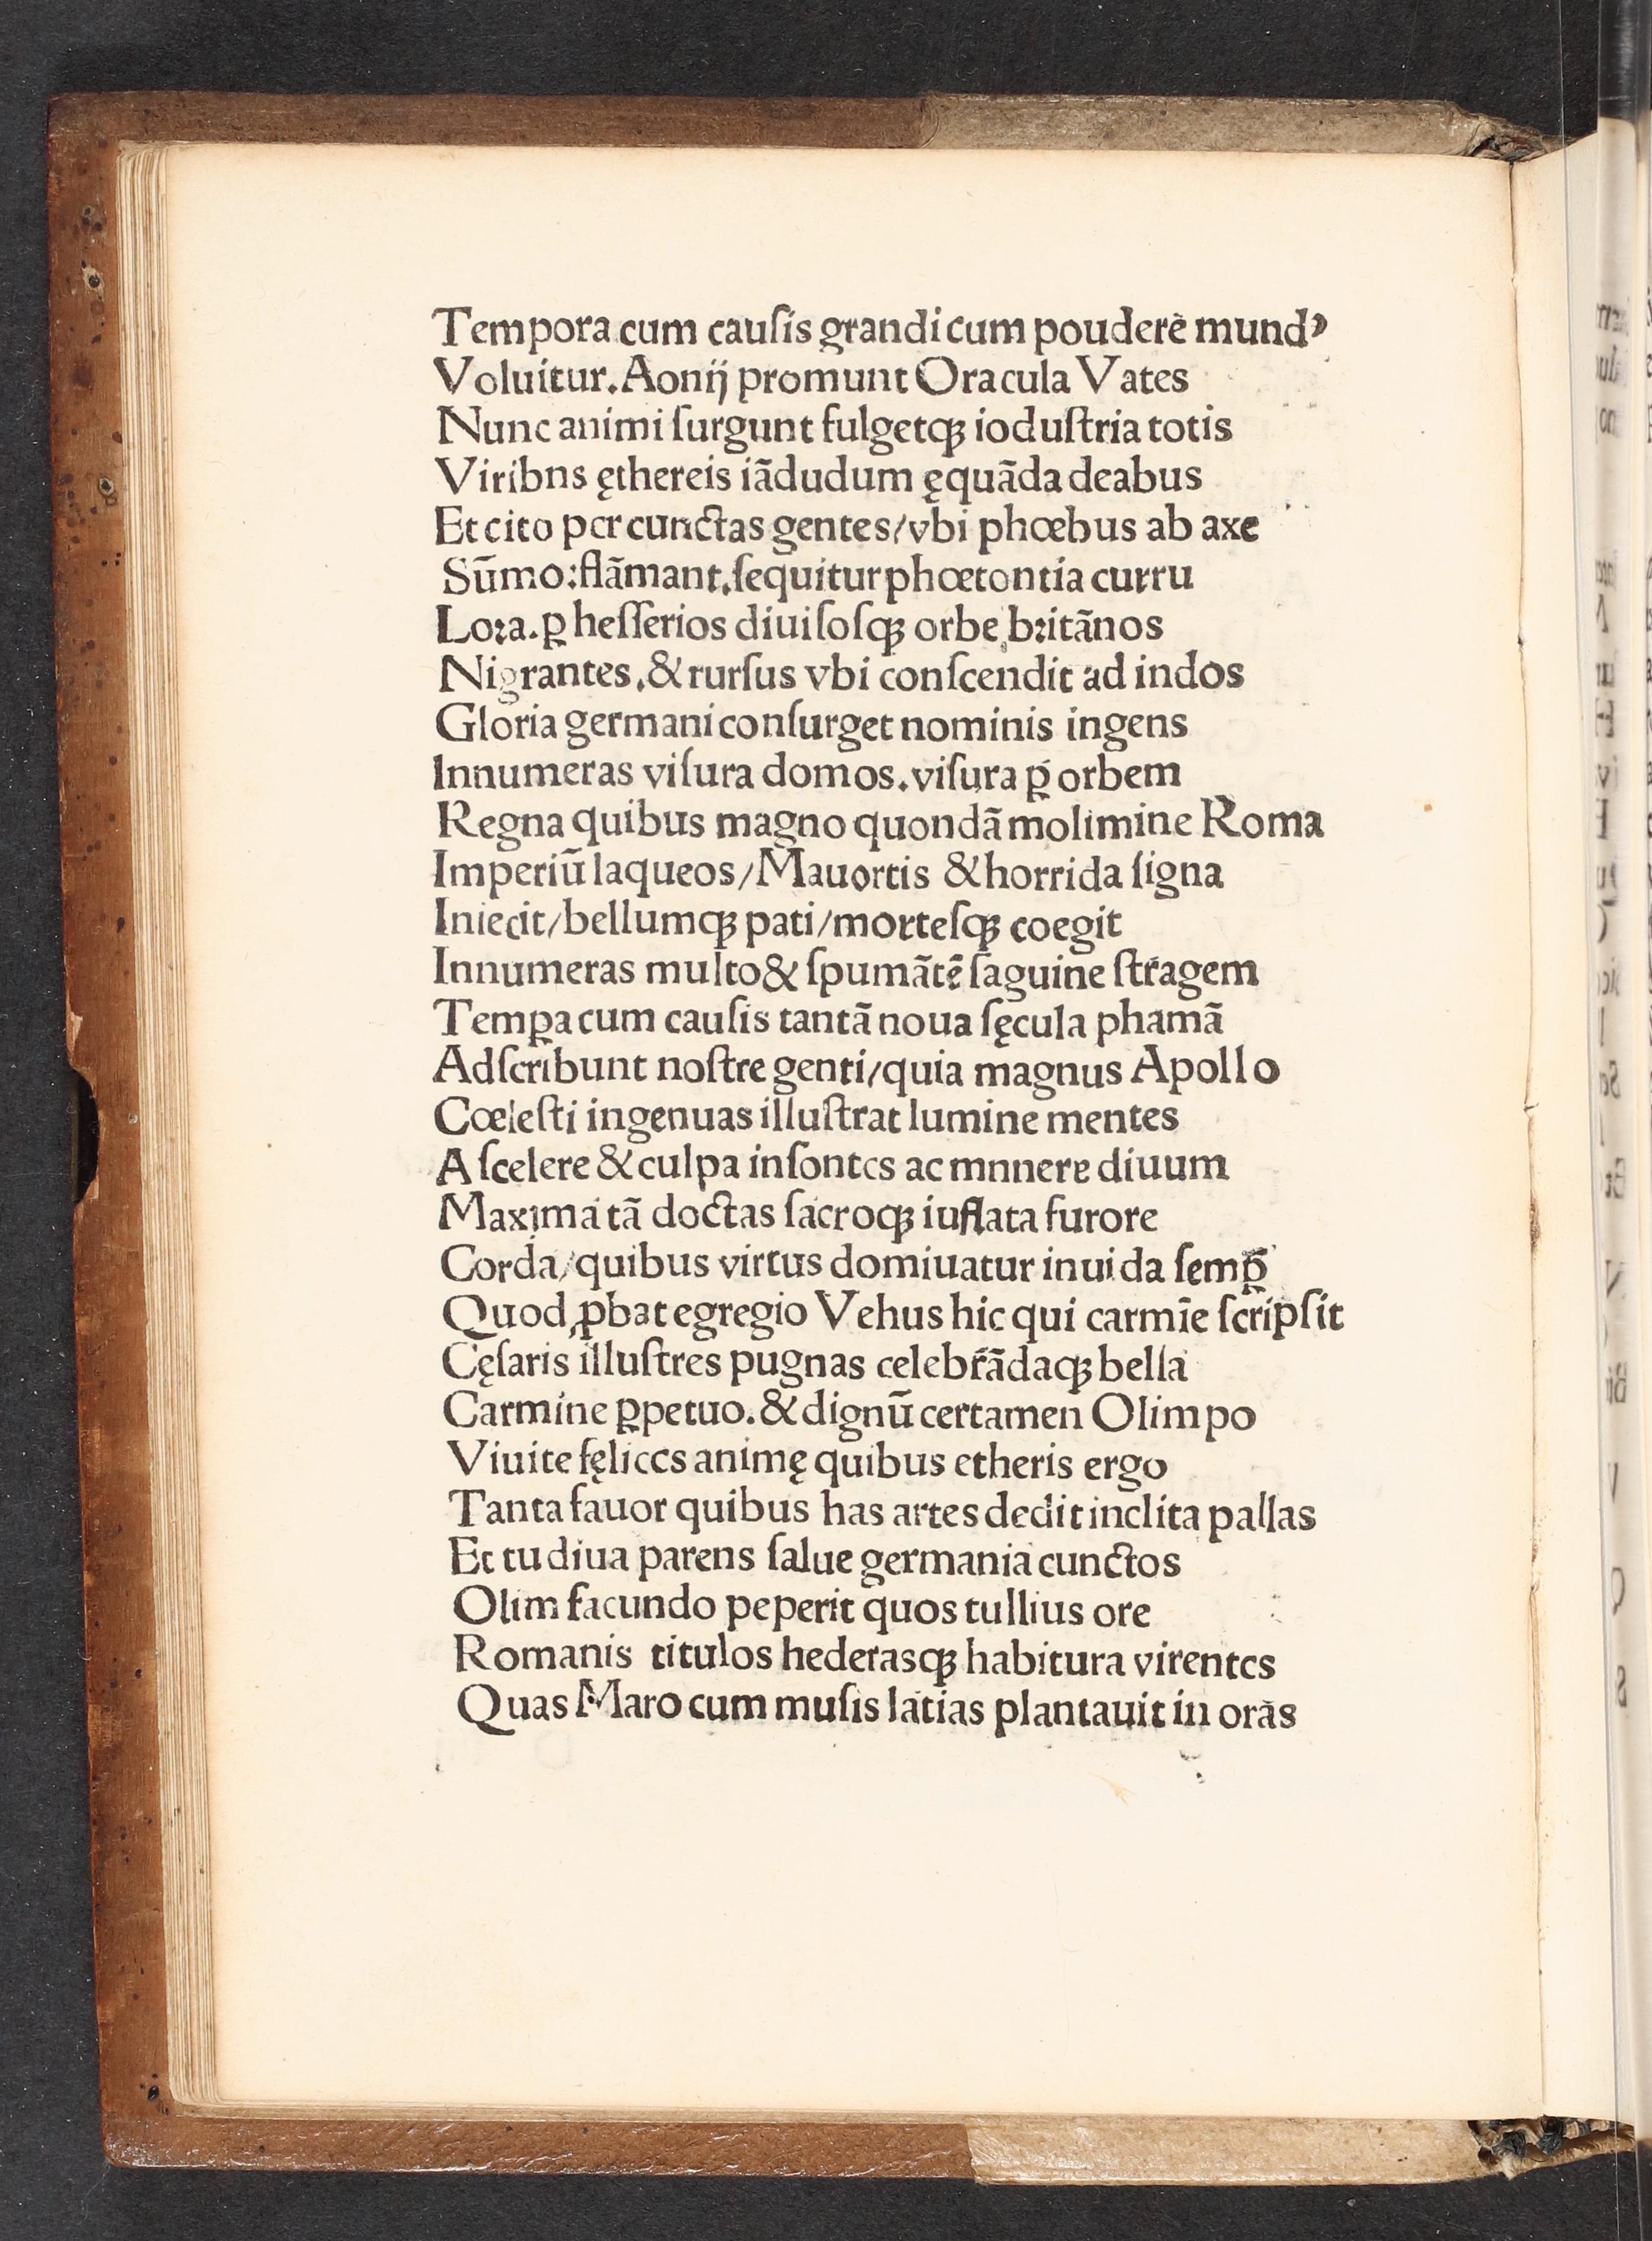 Tempora cum cauſis grandi cum pouderē mundꝰ
Voluitur. Aonij promunt Oracula Vates
Nunc animi ſurgunt fulgetqꝫ ioduſtria totis
Viribns ęthereis iādudum ęquāda deabus
Et cito per cunctas gentes/vbi phœbus ab axe
Sūmo:flāmant.ſequitur phœtontia curru
Loꝛa.ꝑ heſſerios diuiſoſqꝫ orbe bꝛitānos
Nigrantes.& rurſus vbi conſcendit ad indos
Gloria germani conſurget nominis ingens
Innumeras viſura domos.viſura ꝑ orbem
Regna quibus magno quondā molimine Roma
Imperiū laqueos/Mauortis & horrida ſigna
Iniecit/bellumqꝫ pati/morteſqꝫ coegit
Innumeras multo & ſpumātē ſaguine ſtragem
Temꝑa cum cauſis tantā noua ſęcula phamā
Adſcribunt noſtre genti/quia magnus Apollo
Cœleſti ingenuas illuſtrat lumine mentes
A ſcelere & culpa inſontes ac mnnere diuum
Maxima tā doctas ſacroqꝫ iuflata furore
Corda/quibus virtus domiuatur inuida ſemꝑ
Quod ꝓbat egregio Vehus hic qui carmīe ſcripſit
Cęſaris illuſtres pugnas celebrādaqꝫ bella
Carmine ꝑpetuo.& dignū certamen Olimpo
Viuite fęlices animę quibus etheris ergo
Tanta fauor quibus has artes dedit inclita pallas
Et tu diua parens ſalue germania cunctos
Olim facundo peperit quos tullius ore
Romanis titulos hederasqꝫ habitura virentes
Quas Maro cum muſis latias plantauit in oras